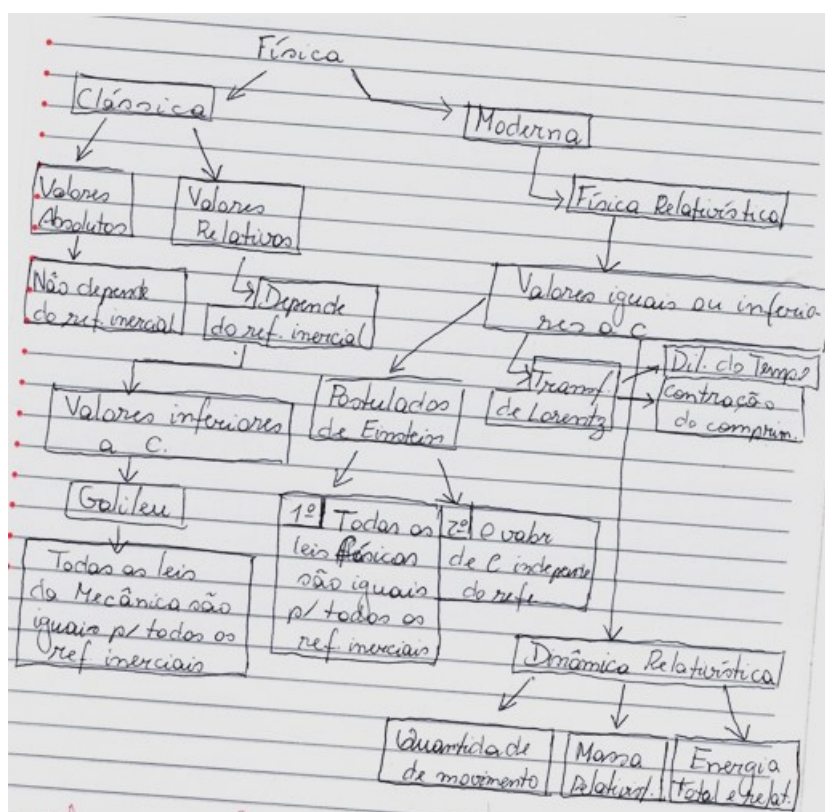 Física
Clássica
Moderna
Valores
Absolutos
Valores
Relativos
Física Relativística
Não depende
do ref. inercial
Depende
do ref. inercial
Valores iguais ou inferio-
res a C
Valores inferiores
a C.
Postulados
de Einstein
Transf.
de Lorentz
Dil. do Tempo
Contração
do comprim.
Galileu
Todas as leis
da Mecânica são
iguais p/ todos os
ref. inerciais
1º Todas as
leis físicas
são iguais
p/ todos os
ref. inerciais
2º O valor
de C indepente
do refe
Dinâmica Relativística
Quantidade
de movimento
Massa
Relativist.
Energia
Total e relat.